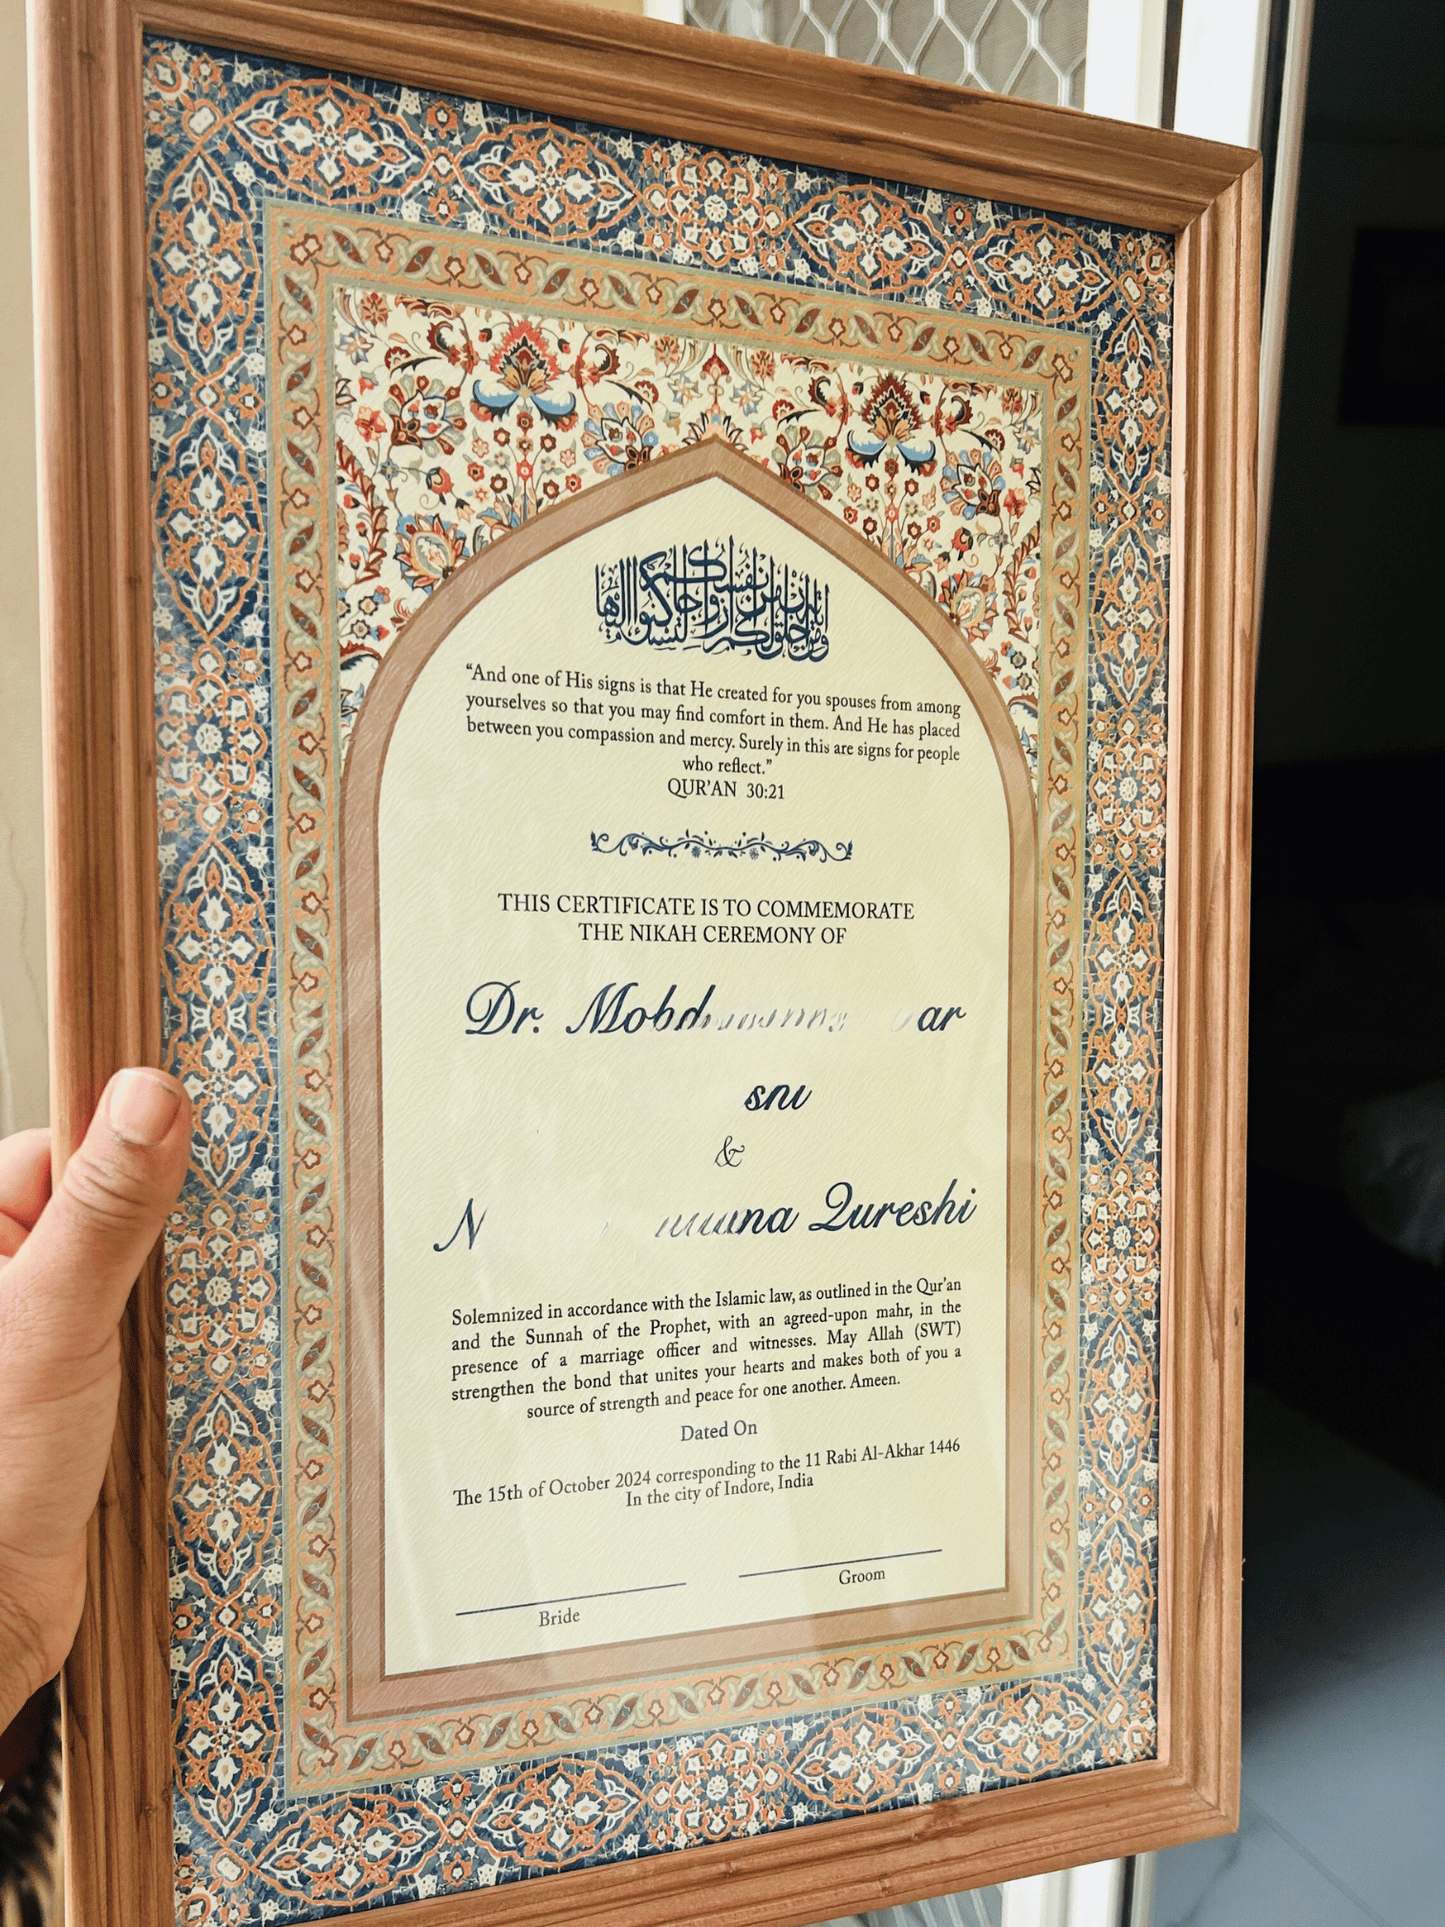 ومن آياته أن خلق لكم من أنفسكم أزواجا لتسكنوا إليها
“And one of His signs is that He created for you spouses from among
yourselves so that you may find comfort in them. And He has placed
between you compassion and mercy. Surely in this are signs for people
who reflect.”
QUR’AN 30:21
THIS CERTIFICATE IS TO COMMEMORATE
THE NIKAH CEREMONY OF
Dr.
&
Qureshi
Solemnized in accordance with the Islamic law, as outlined in the Qur’an
and the Sunnah of the Prophet, with an agreed-upon mahr, in the
presence of a marriage officer and witnesses. May Allah (SWT)
strengthen the bond that unites your hearts and makes both of you a
source of strength and peace for one another. Ameen.
Dated On
The 15th of October 2024 corresponding to the 11 Rabi Al-Akhar 1446
In the city of Indore, India
Bride
Groom